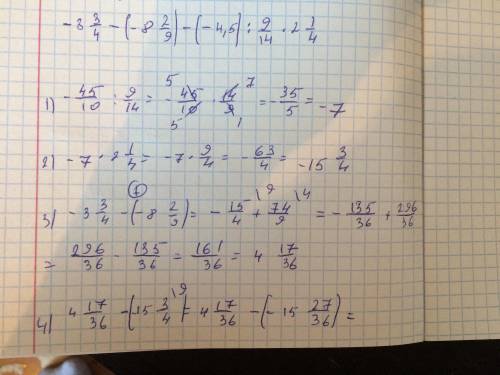 -3 3/4 - (-8 2/9) - (-4,5) : 9/14 · 2 1/4
1) -45/10 : 9/14 = -45/10 · 14/9 = -35/5 = -7
2) -7 · 2 1/4 = -7 · 9/4 = -63/4 = -15 3/4
3) -3 3/4 - (-8 2/9) = -15/4 + 74/9 = -135/36 + 296/36
= 296/36 - 135/36 = 161/36 = 4 17/36
4) 4 17/36 - (15 3/4) = 4 17/36 - (-15 27/36) =